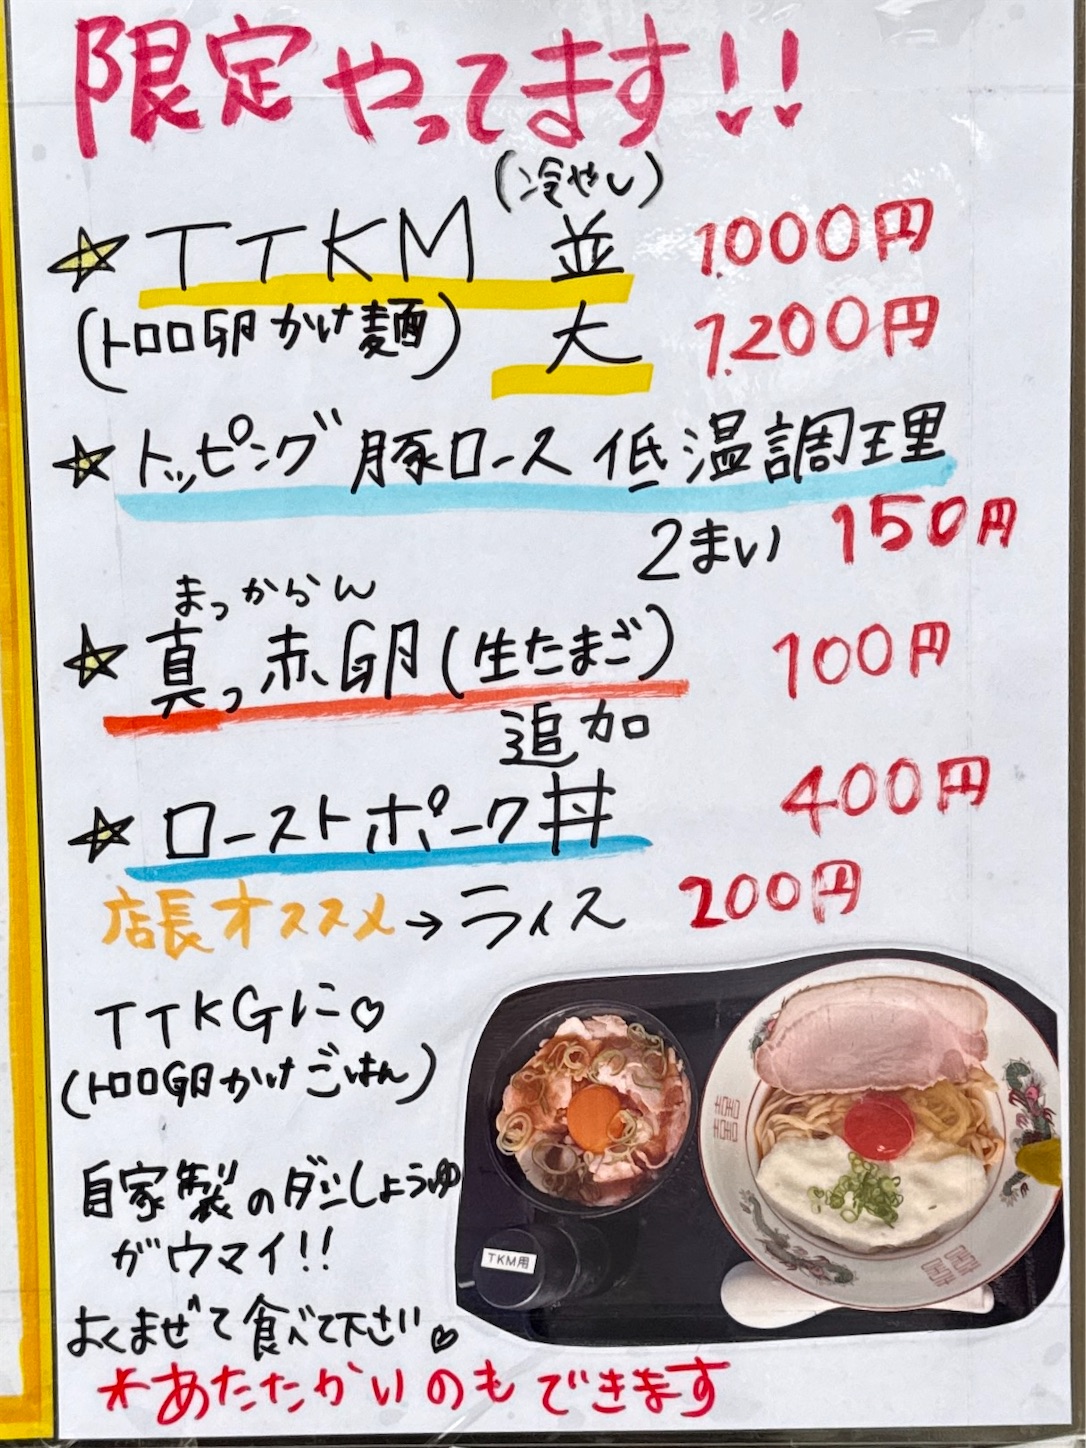 限定やってます!!
(冷やし)
☆TTKM 並 1.000円
(トロロ卵かけ麺) 大 1.200円
☆トッピング 豚ロース 低温調理
2まい 150円
まっからん
☆真っ赤卵(生たまご) 100円
追加
☆ローストポーク丼 400円
店長オススメ→ライス 200円
TTKGに♡
(トロロ卵かけごはん)
自家製のダシしょうゆ
がウマイ!!
よくまぜて食べて下さい♡
*あたたかいのもできます
TKM用